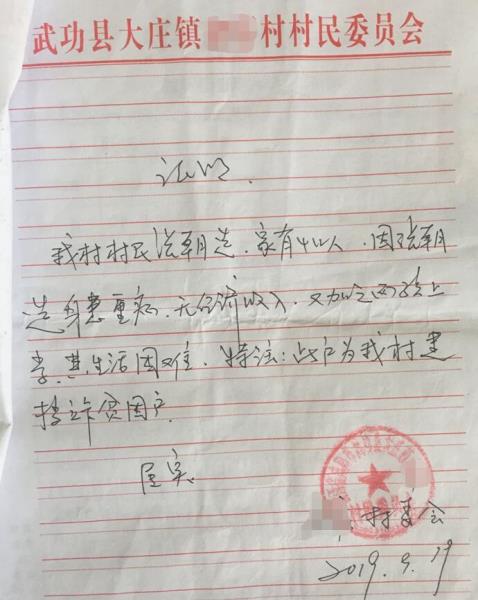 武功县大庄镇 村村民委员会
证明.
我村村民 朝选.家有4口人.因 朝
选身患重病.无经济收入.又加
学.其生活困难.特注:此户为我村建
档 贫困户.
属实.
村委会
2019.9.19